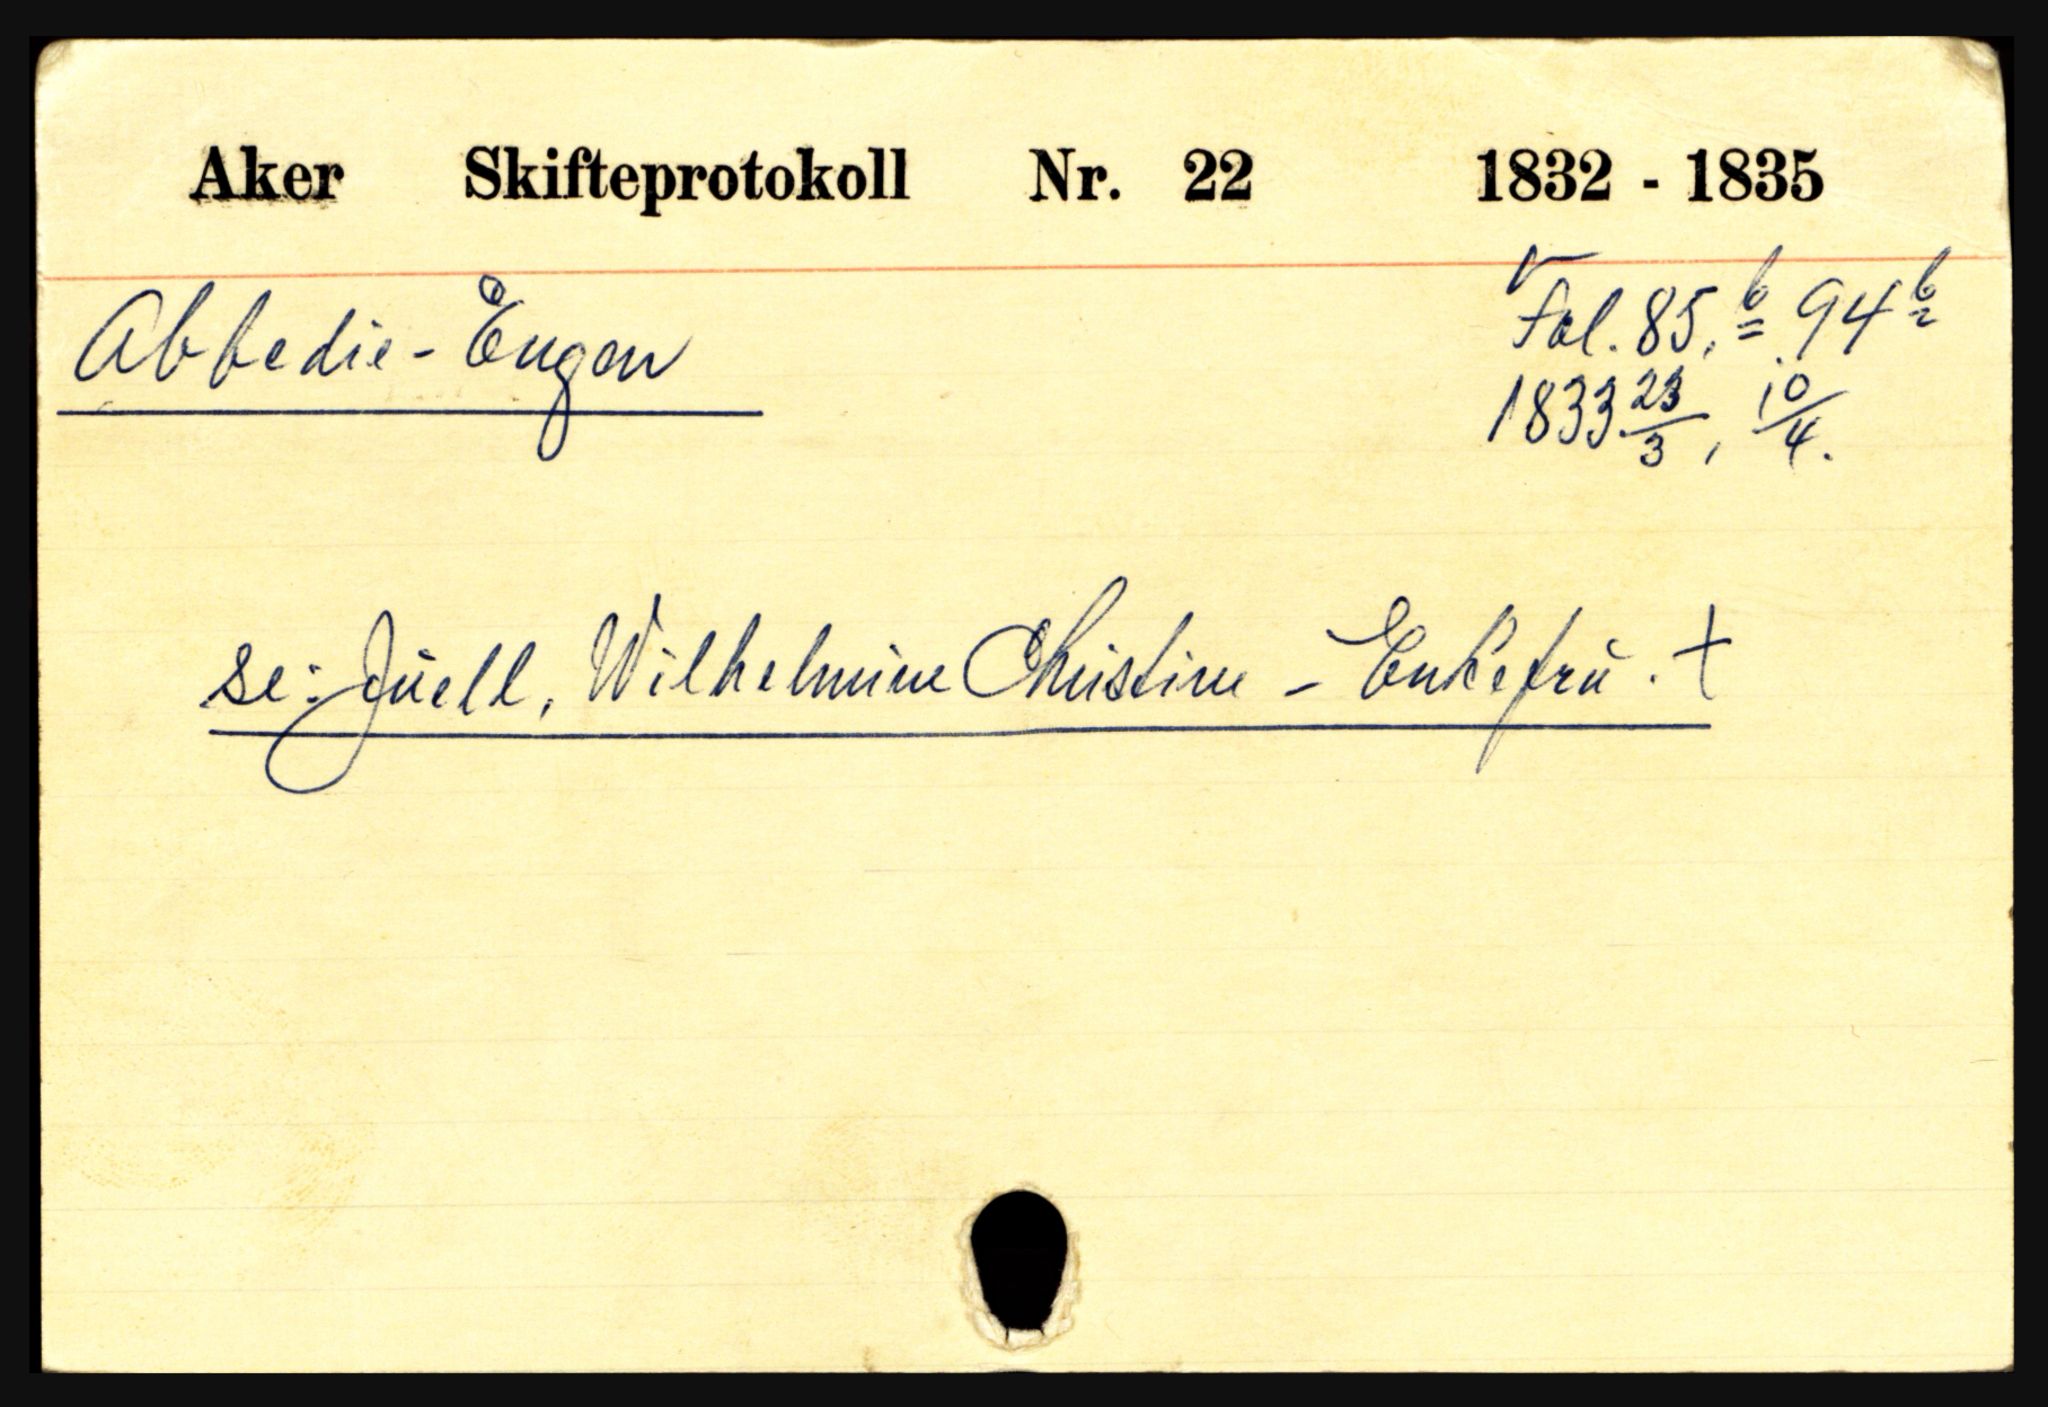 Aker Skifteprotokoll Nr. 22 1832 - 1835
Abbedie - Eugen
Fol. 85,b 94b
1833 23/3, 10/4.
se: Juell, Wilhelmine Christine - Enkefru. +